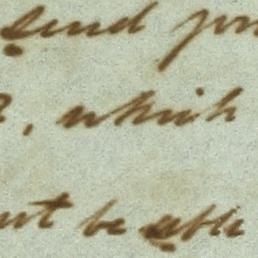 send you
, which
be able